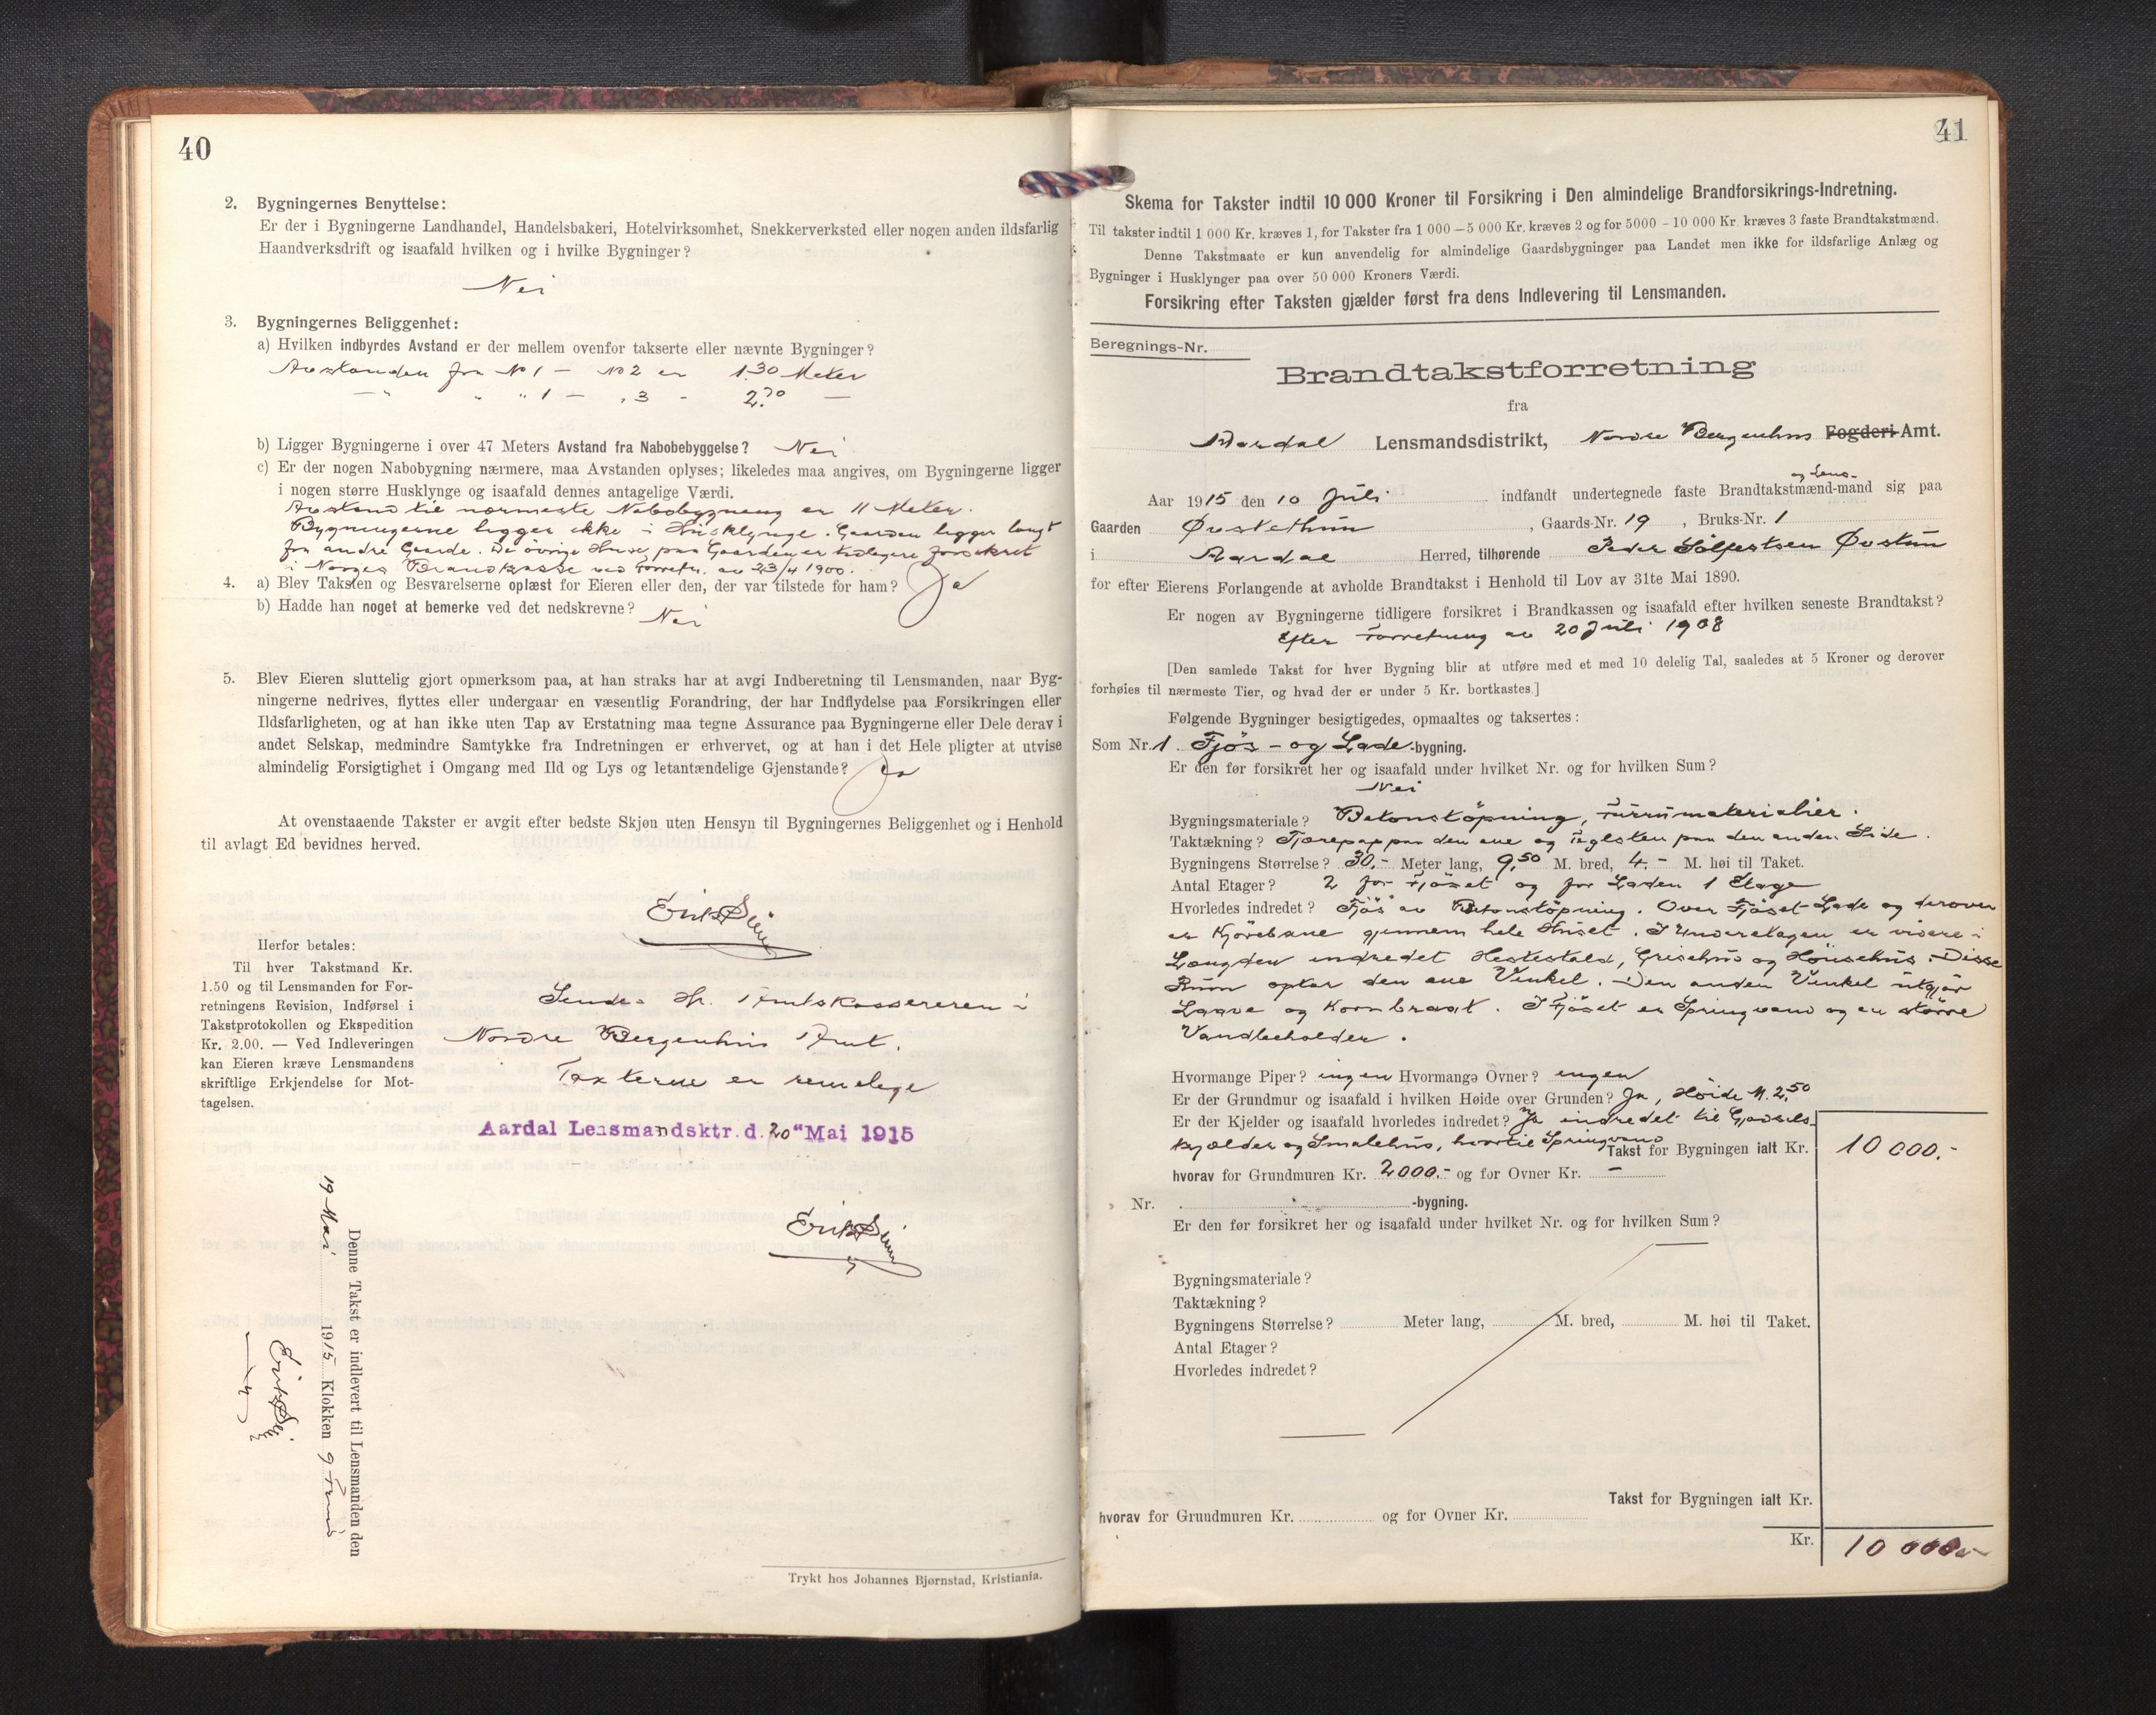 40
2. Bygningernes Benyttelse:
Er der i Bygningerne Landhandel, Handelsbakeri, Hotelvirksomhet, Snekkerverksted eller nogen anden ildsfarlig
Haandverksdrift og isaafald hvilken og i hvilke Bygninger?
Nei
3. Bygningernes Beliggenhet:
a) Hvilken indbyrdes Avstand er der mellem ovenfor takserte eller nævnte Bygninger?
Avstanden fra No 1 – No 2 er 1.30 Meter
– " " " 1 – " 3 - 2.70 —
b) Ligger Bygningerne i over 47 Meters Avstand fra Nabobebyggelse? Nei
c) Er der nogen Nabobygning nærmere, maa Avstanden oplyses; likeledes maa angives, om Bygningerne ligger
i nogen større Husklynge og isaafald dennes antagelige Værdi.
Avstand til nærmeste Nabobygning er 11 Meter.
Bygningerne ligger ikke i Husklynge. Gaarden ligger langt
fra andre Gaarde. De övrige Huse paa Gaarden er tidligere forsikret
i Norges Brandkasse ved Forretn. av 23/4 1900.
4. a) Blev Taksten og Besvarelserne oplæst for Eieren eller den, der var tilstede for ham? Ja
b) Hadde han noget at bemerke ved det nedskrevne? Nei
5. Blev Eieren sluttelig gjort opmerksom paa, at han straks har at avgi Indberetning til Lensmanden, naar Byg-
ningerne nedrives, flyttes eller undergaar en væsentlig Forandring, der har Indflydelse paa Forsikringen eller
Ildsfarligheten, og at han ikke uten Tap av Erstatning maa tegne Assurance paa Bygningerne eller Dele derav i
andet Selskap, medmindre Samtykke fra Indretningen er erhvervet, og at han i det Hele pligter at utvise
almindelig Forsigtighet i Omgang med Ild og Lys og letantændelige Gjenstande? Ja
At ovenstaaende Takster er avgit efter bedste Skjøn uten Hensyn til Bygningernes Beliggenhet og i Henhold
til avlagt Ed bevidnes herved.
Herfor betales:
Til hver Takstmand Kr.
1.50 og til Lensmanden for For-
retningens Revision, Indførsel i
Takstprotokollen og Ekspedition
Kr. 2.00. — Ved Indleveringen
kan Eieren kræve Lensmandens
skriftlige Erkjendelse for Mot-
tagelsen.
Sendes Hr. Amtskassereren i
Nordre Bergenhus Amt.
Taxterne er rimelige
Aardal Lensmandsktr. d. 20 "Mai 1915
Denne Takst er indlevert til Lensmanden den
19 Mai 1915 Klokken 9 Form
Trykt hos Johannes Bjørnstad, Kristiania.
41
Skema for Takster indtil 10 000 Kroner til Forsikring i Den almindelige Brandforsikrings-Indretning.
Til takster indtil 1 000 Kr. kræves 1, for Takster fra 1 000 – 5 000 Kr. kræves 2 og for 5000 - 10 000 Kr. kræves 3 faste Brandtakstmænd.
Denne Takstmaate er kun anvendelig for almindelige Gaardsbygninger paa Landet men ikke for ildsfarlige Anlæg og
Bygninger i Husklynger paa over 50 000 Kroners Værdi.
Forsikring efter Taksten gjælder først fra dens Indlevering til Lensmanden.
Beregnings-Nr.
Brandtakstforretning
fra
Aardal Lensmandsdistrikt, Nordre Bergenhus Fogderi Amt.
og Lens-
Aar 1915 den 10 Juli indfandt undertegnede faste Brandtakstmænd-mand sig paa
Gaarden Øvstethun, Gaards-Nr. 19, Bruks-Nr. 1
i Aardal Herred, tilhørende Peder Sölfestsen Øvstun
for efter Eierens Forlangende at avholde Brandtakst i Henhold til Lov av 31te Mai 1890.
Er nogen av Bygningerne tidligere forsikret i Brandkassen og isaafald efter hvilken seneste Brandtakst?
Efter Forretning av 20 Juli 1908
[Den samlede Takst for hver Bygning blir at utføre med et med 10 delelig Tal, saaledes at 5 Kroner og derover
forhøies til nærmeste Tier, og hvad der er under 5 Kr. bortkastes.]
Følgende Bygninger besigtigedes, opmaaltes og taksertes:
Som Nr. 1 Fjös- og Lade-bygning.
Er den før forsikret her og isaafald under hvilket Nr. og for hvilken Sum?
Nei
Bygningsmateriale? Betonstöpning, Furumaterialier.
Taktækning? Tjærepap paa den ene og Taglsten paa den anden Side.
Bygningens Størrelse? 30.- Meter lang, 9,50 M. bred, 4.- M. høi til Taket.
Antal Etager? 2 for Fjöset og for Laden 1 Etage
Hvorledes indredet? Fjös av Betonstöpning. Over Fjöset Lade og derover
er Kjörebane gjennem hele Huset. I Underetagen er videre i
Længden indredet Hestestald, Grisehus og Hönsehus. Disse
Rum optar den ene Vinkel. Den anden Vinkel utgjör
Laave og Kornbraat. I Fjöset er Springvand og en större
Vandbeholder.
Hvormange Piper? ingen Hvormange Ovner? ingen
Er der Grundmur og isaafald i hvilken Høide over Grunden? Ja, Höide M. 2,50
Er der Kjelder og isaafald hvorledes indredet? Ja indredet til Gjödsels-
kjælder og Smalehus, hvortil Springvand
Takst for Bygningen ialt Kr. 10 000.-
hvorav for Grundmuren Kr. 2000.- og for Ovner Kr. –
Nr. -bygning.
Er den før forsikret her og isaafald under hvilket Nr. og for hvilken Sum?
Bygningsmateriale?
Taktækning?
Bygningens Størrelse? Meter lang, M. bred, M. høi til Taket.
Antal Etager?
Hvorledes indredet?
Takst for Bygningen ialt Kr.
hvorav for Grundmuren Kr. og for Ovner Kr.
Kr. 10 000.-